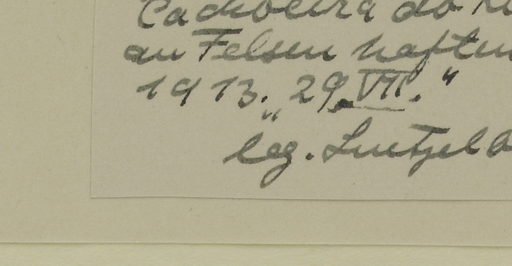 Cachoeira do
an Felsen haftend
1913. „29. VII.“
leg. Luetzelb